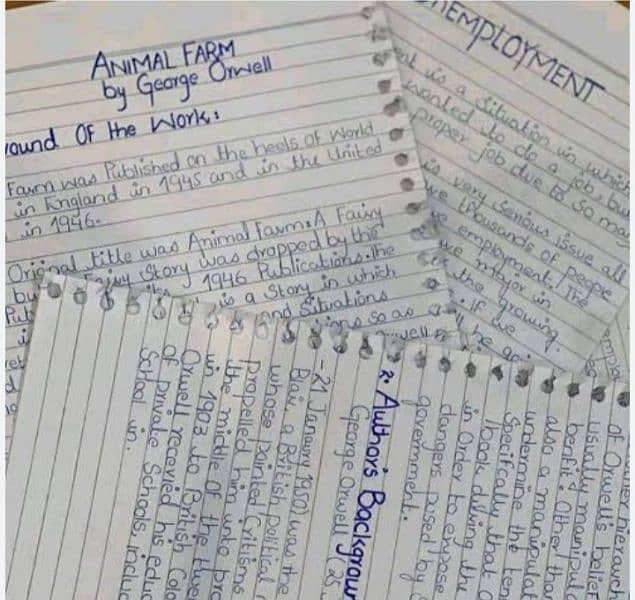 ANIMAL FARM
by George Orwell
ound Of the Work:
Farm was Published on the heels of World
in England in 1945 and in the United
in 1946.
Original title was Animal Farm: A Fairy
Fairy Story was dropped by the
1946 Publications. The
is a Story in which
and Situations
so as
EMPLOYMENT
is a situation in which
wanted to do a job, but
proper job due to so man
is very serious issue all
thousands of people
employment! The
major in
the growing
if we
2. Author's Backgroun
George Orwell (25
-21 Janaury 1950) was the
Blair, a British political
whose pointed Critisms
propelled him into pro
the middle Of the twe
in 1903 to British Colo
Orwell recevied his educ
of private Schools, includ
School in.
er hierarch
of Orwell's belief
usually manipula
benifit. Other tha
also a manipulat
undermine the ten
Specifically that O
book during the
in Order to expose
dangers posed by S
government.